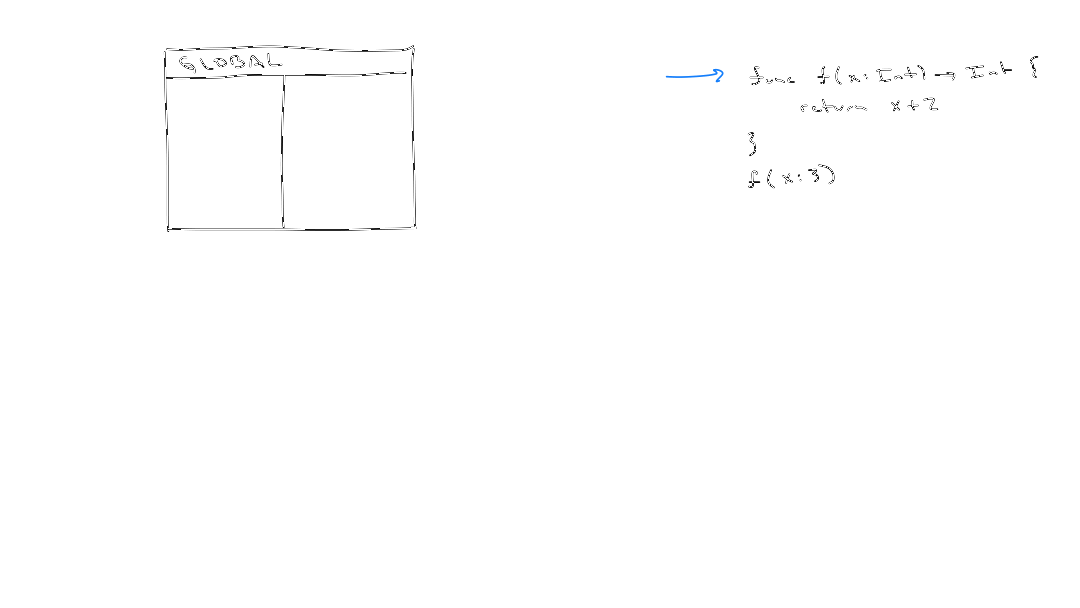 GLOBAL
func f(x: Int) → Int {
return x+2
}
f(x:3)